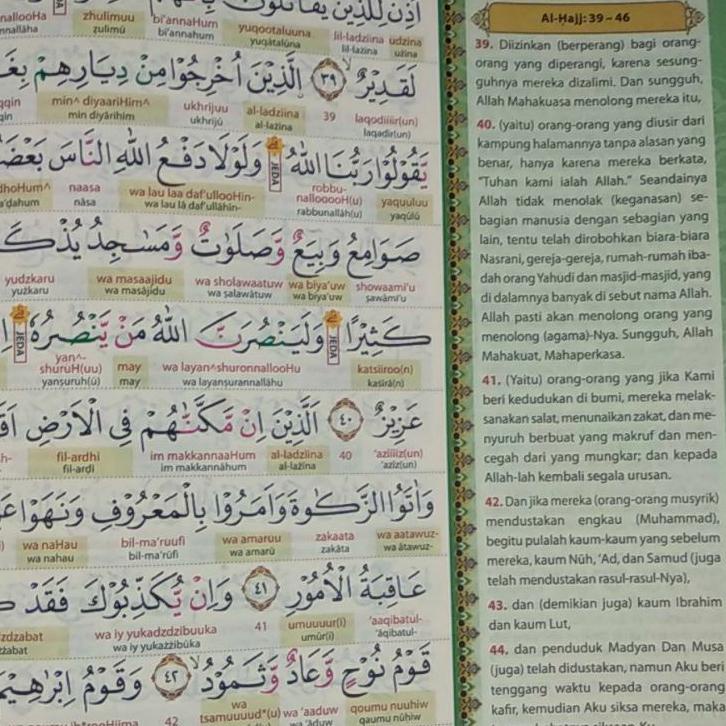 اُذِنَ لِلَّذِيْنَ يُقَاتَلُوْنَ
nallooHa zhulimuu bi'annaHum yuqootaluuna lil-ladziina udzina
nallāha ẓulimū bi'annahum yuqātalūna lil-lażīna użina
لَقَدِيْرٌ ۙ ﴿٣٩﴾ الَّذِيْنَ اُخْرِجُوْا مِنْ دِيَارِهِمْ بِغَ
min^ diyaariHim^ ukhrijuu al-ladziina 39 laqodiiir(un)
min diyārihim ukhrijū al-lażīna laqadīr(un)
يَّقُوْلُوْا رَبُّنَا اللّٰهُ ۗ JEDA وَلَوْلَا دَفْعُ اللّٰهِ النَّاسَ بَعْضَ
dhoHum^ naasa wa lau laa daf'ullooHin- robbu-nallooooH(u) yaquuluu
a'ḍahum nāsa wa lau lā daf'ullāhin- rabbunallāh(u) yaqūlū
صَوَامِعُ وَبِيَعٌ وَّصَلَوٰتٌ وَّمَسٰجِدُ يُذْكَ
yudzkaru wa masaajidu wa sholawaatuw wa biya'uw showaami'u
yużkaru wa masājidu wa ṣalawātuw wa biya'uw ṣawāmi'u
كَثِيْرًا ۗ JEDA وَلَيَنْصُرَنَّ اللّٰهُ مَنْ يَّنْصُرُهٗ ۗ JEDA
yan^-shuruH(uu) may walayan^shuronnallooHu katsiiroo(n)
yanṣuruh(ū) may wa layanṣurannallāhu kaṡīrā(n)
عَزِيْزٌ ﴿٤٠﴾ اَلَّذِيْنَ اِنْ مَّكَّنّٰهُمْ فِى الْاَرْضِ اَقَ
fil-ardhi im makkannaaHum al-ladziina 40 'aziiiz(un)
fil-arḍi im makkannāhum al-lażīna 'azīz(un)
وَاٰتَوُا الزَّكٰوةَ وَاَمَرُوْا بِالْمَعْرُوْفِ وَنَهَوْا عَ
wa naHau bil-ma'ruufi wa amaruu zakaata wa aatawuz-
wa nahau bil-ma'rūfi wa amarū zakāta wa ātawuz-
عَاقِبَةُ الْاُمُوْرِ ﴿٤١﴾ وَاِنْ يُّكَذِّبُوْكَ فَقَدْ كَ
dzdzabat wa iy yukadzdzibuuka 41 umuuuur(i) 'aaqibatul-
żżabat wa iy yukażżibūka umūr(i) 'āqibatul-
قَوْمُ نُوْحٍ وَّعَادٌ وَّثَمُوْدُ ۙ ﴿٤٢﴾ وَقَوْمُ اِبْرٰهِيْمَ
42 wa tsamuuuud*(u) wa 'aaduw qoumu nuuhiw
wa 'āduw qaumu nūḥiw
Al-Ḥajj: 39 – 46
39. Diizinkan (berperang) bagi orang-
orang yang diperangi, karena sesung-
guhnya mereka dizalimi. Dan sungguh,
Allah Mahakuasa menolong mereka itu,
40. (yaitu) orang-orang yang diusir dari
kampung halamannya tanpa alasan yang
benar, hanya karena mereka berkata,
"Tuhan kami ialah Allah." Seandainya
Allah tidak menolak (keganasan) se-
bagian manusia dengan sebagian yang
lain, tentu telah dirobohkan biara-biara
Nasrani, gereja-gereja, rumah-rumah iba-
dah orang Yahudi dan masjid-masjid, yang
di dalamnya banyak di sebut nama Allah.
Allah pasti akan menolong orang yang
menolong (agama)-Nya. Sungguh, Allah
Mahakuat, Mahaperkasa.
41. (Yaitu) orang-orang yang jika Kami
beri kedudukan di bumi, mereka melak-
sanakan salat, menunaikan zakat, dan me-
nyuruh berbuat yang makruf dan men-
cegah dari yang mungkar; dan kepada
Allah-lah kembali segala urusan.
42. Dan jika mereka (orang-orang musyrik)
mendustakan engkau (Muhammad),
begitu pulalah kaum-kaum yang sebelum
mereka, kaum Nūh, 'Ad, dan Samud (juga
telah mendustakan rasul-rasul-Nya),
43. dan (demikian juga) kaum Ibrahim
dan kaum Lut,
44. dan penduduk Madyan Dan Musa
(juga) telah didustakan, namun Aku beri
tenggang waktu kepada orang-orang
kafir, kemudian Aku siksa mereka, maka